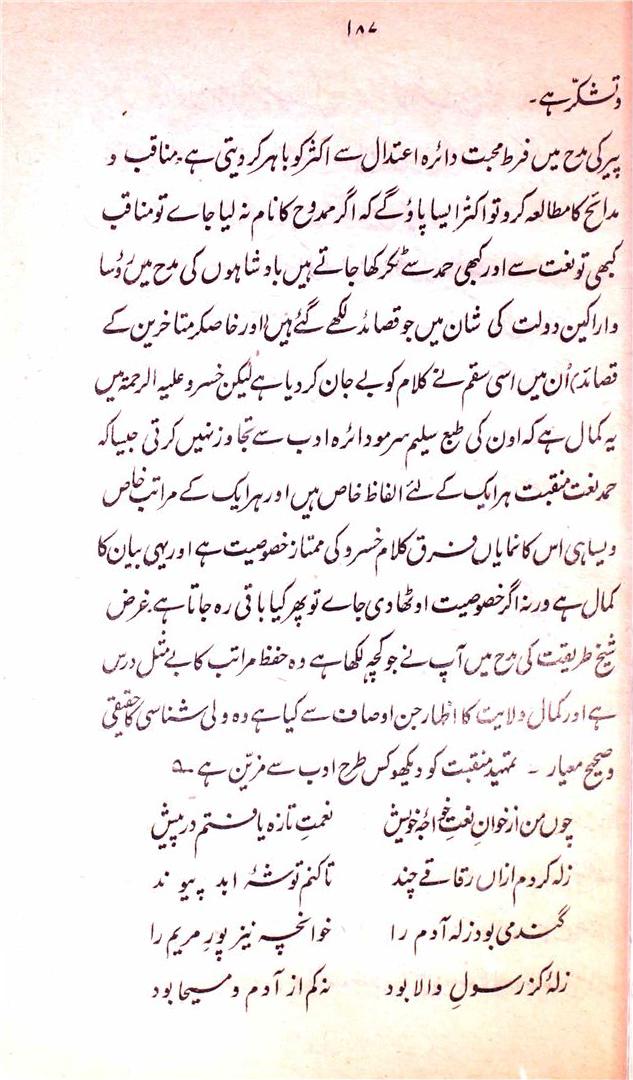 ۱۸۷
و تشکّر ہے۔
پیر کی مدح میں فرط محبت دائرہ اعتدال سے اکثر کو باہر کر دیتی ہے۔ مناقب و
مدائح کا مطالعہ کرو تو اکثر ایسا پاؤ گے کہ اگر ممدوح کا نام نہ لیا جاے تو مناقب
کبھی تو نعت سے اور کبھی حمد سے ٹکر کھا جاتے ہیں بادشاہوں کی مدح میں رؤسا
و اراکین دولت کی شان میں جو قصائد لکھے گئے ہیں (اور خاصکر متاخرین کے
قصائد) اُن میں اسی سقم نے کلام کو بے جان کر دیا ہے لیکن خسرو علیہ الرحمۃ میں
یہ کمال ہے کہ اون کی طبع سلیم سر مو دائرہ ادب سے تجاوز نہیں کرتی جیسا کہ
حمد نعت منقبت ہر ایک کے لئے الفاظ خاص ہیں اور ہر ایک کے مراتب خاص
ویسا ہی اس کا نمایاں فرق کلام خسرو کی ممتاز خصوصیت ہے اور یہی بیان کا
کمال ہے ورنہ اگر خصوصیت اوٹھا دی جاے تو پھر کیا باقی رہ جاتا ہے۔ غرض
شیخ طریقت کی مدح میں آپ نے جو کچھ لکھا ہے وہ حفظ مراتب کا بے مثل درس
ہے اور کمال ولایت کا اظہار جن اوصاف سے کیا ہے وہ ولی شناسی کا حقیقی
و صحیح معیار ۔ تمہید منقبت کو دیکھو کس طرح ادب سے مزیّن ہے ؎
چوں من از خوانِ نعتِ خواجۂ خویش نعمتِ تازہ یافتم در پیش
زلہ کردم ازاں رقاقے چند تا کنم توشۂ ابد پیوند
گندمی بود زلہ آدم را خوانچہ نیز پورِ مریم را
زلۂ کز رسولِ والا بود نہ کم از آدم و مسیحا بود